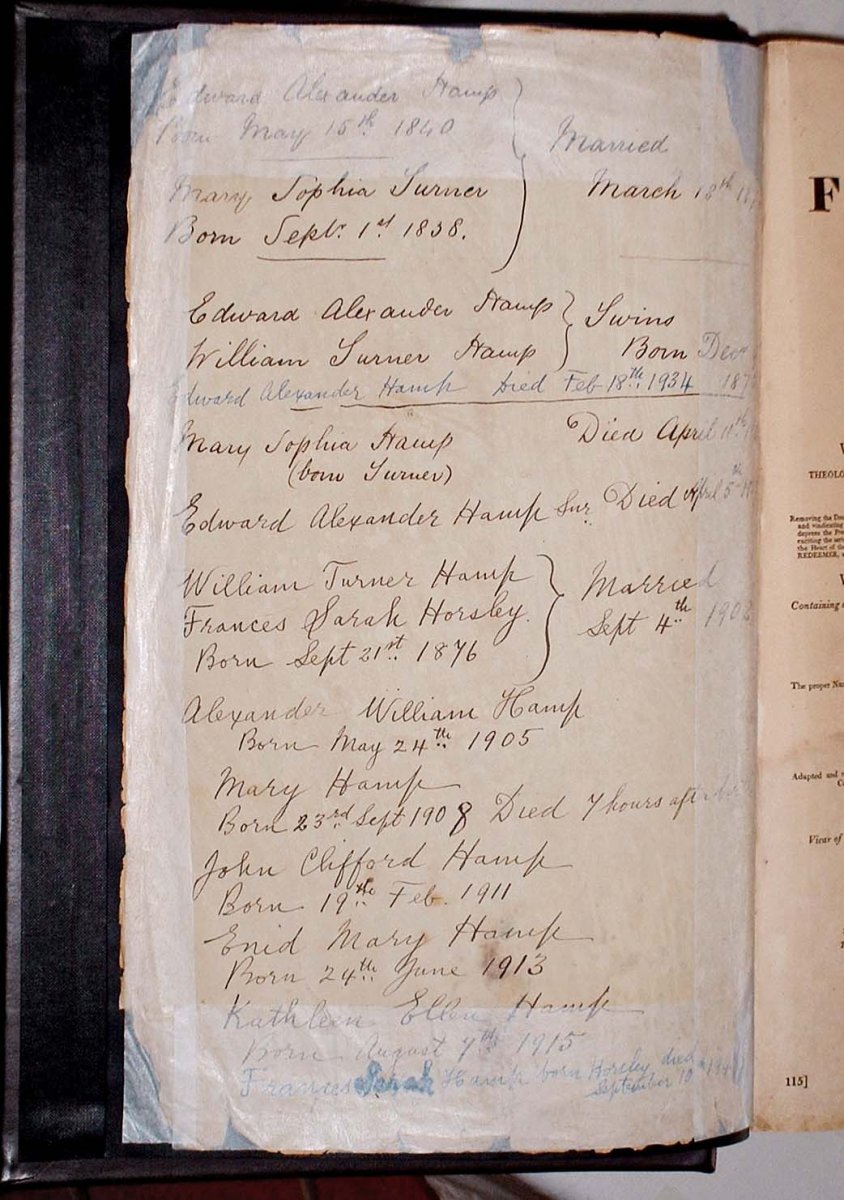 Edward Alexander Hamp
Born May 15th 1840
Married
Mary Sophia Turner
March 18th
Born Septr. 1st 1838.
Edward Alexander Hamp
Twins
William Turner Hamp
Born Decr
Edward Alexander Hamp Died Feb 18th 1934
Mary Sophia Hamp
Died April
(born Turner)
Edward Alexander Hamp Snr. Died April 5th
William Turner Hamp
Married
Frances Sarah Horsley.
Sept 4th 1902
Born Sept 21st 1876
Alexander William Hamp
Born May 24th 1905
Mary Hamp
Born 23rd Sept 1908 Died 7 hours after
John Clifford Hamp
Born 19th Feb. 1911
Enid Mary Hamp
Born 24th June 1913
Kathleen Ellen Hamp
Born August 7th 1915
Frances Sarah Hamp born Horsley died
September 10
F
THEOLO
Removing the
and vindicating
depress the
exciting the
the Heart of the
REDEEMER,
Containing
The proper
Adapted and
Vicar of
115]